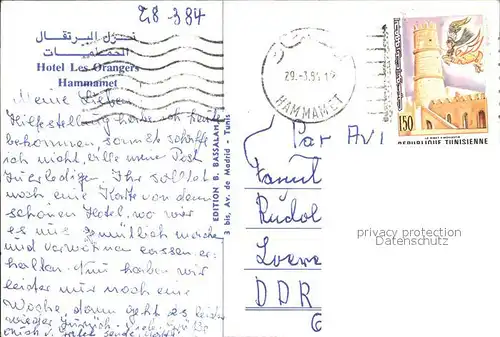 28-3 84
نزل البرتقال
الحمامات
Hotel Les Orangers
Hammamet
Meine Lieben
Hilfestellung habe ich heute
bekommen sonst schaffe
ich nicht, alle meine Post
zu erledigen. Ihr sollt
noch eine Karte von dem
schönen Hotel, wo wir
es uns gemütlich machen
und verwöhnen lassen er-
halten. Nun haben wir
leider nur noch eine
Woche, dann geht es leider
wieder zurück. Viele Grüße
EDITION B. BASSALAH
3 bis, Av. de Madrid - Tunis
HAMMAMET
Par AVI
Famil
Rudol
DDR
150
REPUBLIQUE TUNISIENNE
privacy protection
Datenschutz